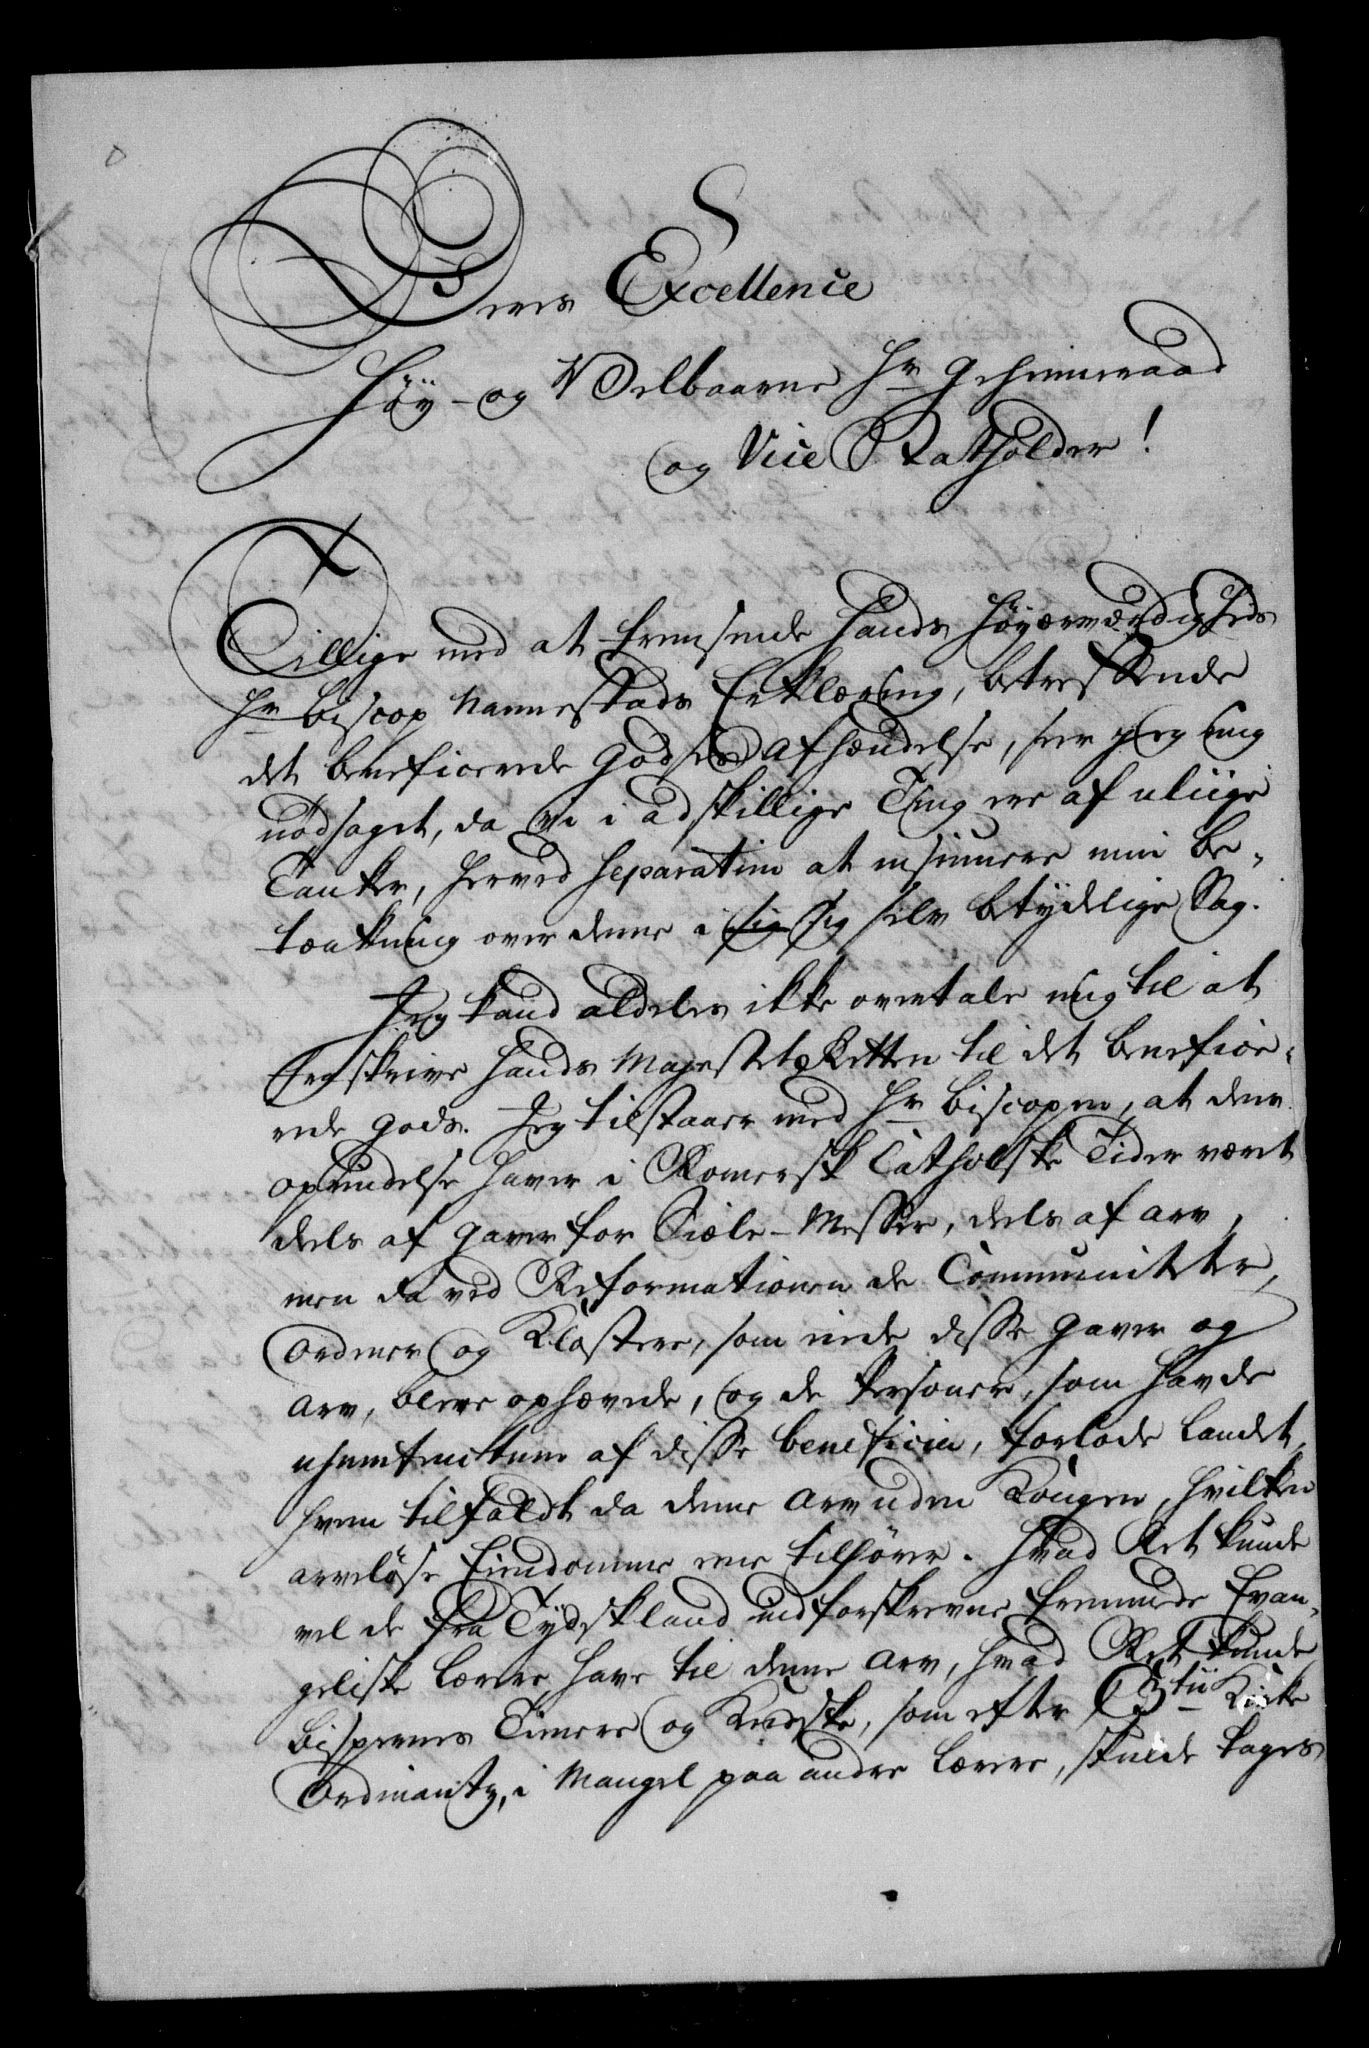 Deres Excellence
Høy- og Velbaarne Hr Geheimeraad
og Vice Statholder!
Tillige med at fremsende Hands Høyærværdigheds
Hr Biscop Nannestads Erklæring, betreffende
det beneficerede Godses Afhændelse, seer jeg mig
nødsaget, da vi i adskillige Ting ere af uliige
Tanker, herved separatim at insinuere min Be-
tænkning over denne i sig selv betydelige Sag.
Jeg kand aldeles ikke overtale mig til at
fraskrive Hands Majestet Retten til det benefice-
rede Gods. Jeg tilstaaer med Hr Biscopen, at dens
oprindelse haver i Romersk Catholske Tider været
deels af Gaver for Siæle-Messer, deels af Arv,
men da ved Reformationen de Communiteter,
Ordener og Klostere, som nøde disse Gaver og
Arv, bleve ophævede, og de Personer, som havde
usumfructum af disse beneficia, forlode Landet,
hvem tilfaldt da denne Arv uden Kongen, hvilken
arveløse Eiendomme ene tilhører. Hvad Ret kunde
vel de fra Tydskland udforskrevne fremmede Evan-
geliske Lærere have til denne Arv, hvad Ret kunde
Bispernes Tienere og Kudske, som efter C 3tii Kirke
Ordinantz, i Mangel paa andre Lærere, skulde tages